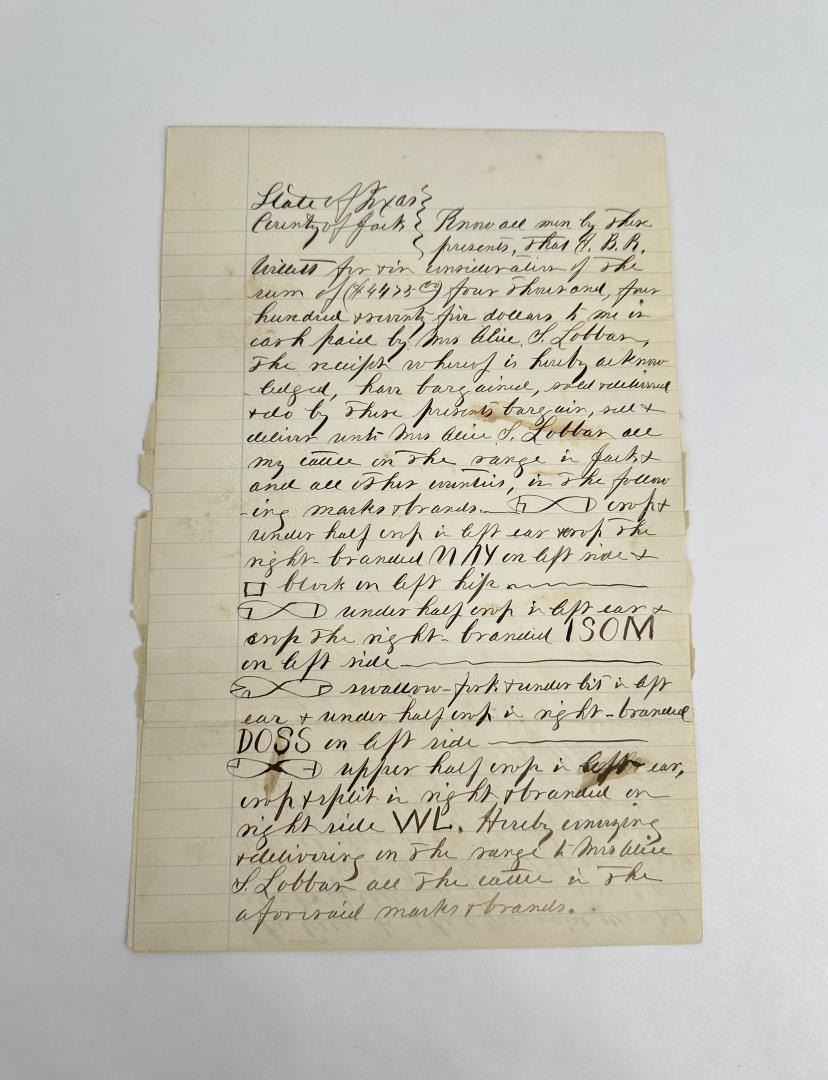 State of Texas
County of Jack Know all men by these
presents, that I, B. R.
Willett for & in consideration of the
sum of ($4475 00) four thousand, four
hundred & seventy five dollars to me in
cash paid by Mrs Alice S. Lobban,
the receipt whereof is hereby acknow
-ledged, have bargained, sold & delivered
& do by these presents bargain, sell &
deliver unto Mrs Alice S. Lobban all
my cattle on the range in Jack &
and all other counties, in the follow
-ing marks & brands. crop &
under half crop in left ear & crop the
right - branded on left side &
block on left hip.
under half crop in left ear &
crop the right - branded ISOM
on left side
swallow-fork & under bit in left
ear & under half crop in right - branded
DOSS on left side
upper half crop in left ear,
crop & split in right & branded on
right side WL. Hereby conveying
& delivering on the range to Mrs Alice
S. Lobban all the cattle in the
aforesaid marks & brands.